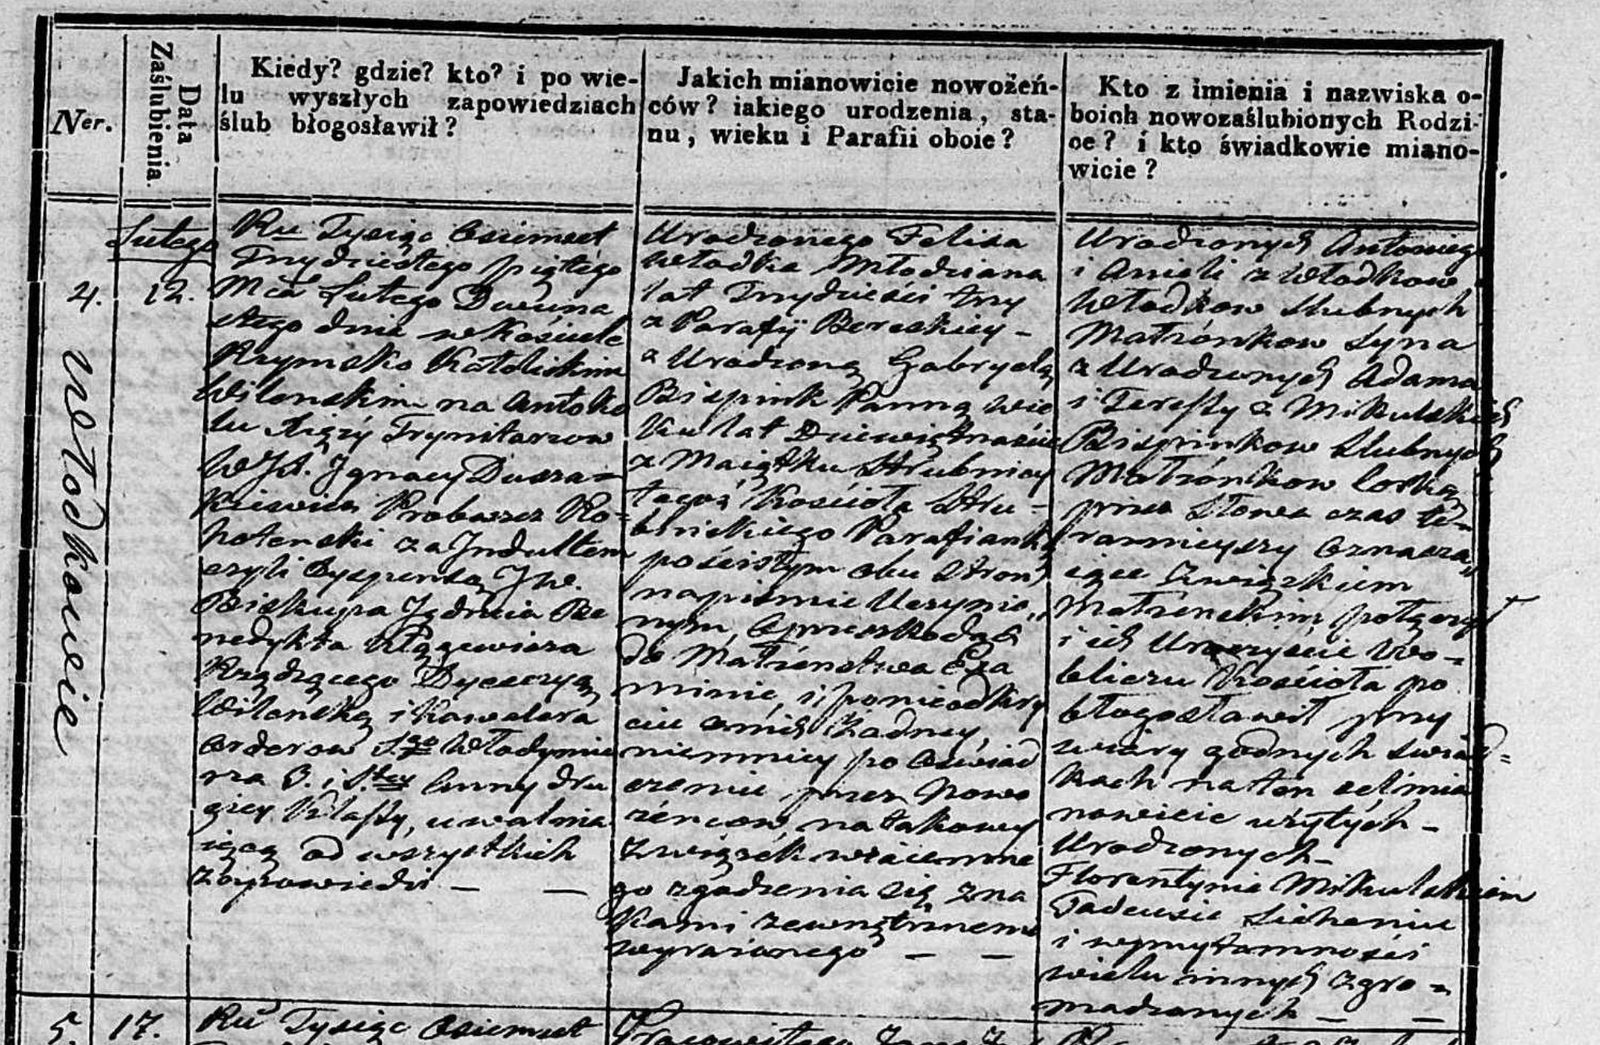 Ner.
Data
Zaślubienia.
Kiedy? gdzie? kto? i po wie-
lu wyszłych zapowiedziach
ślub błogosławił?
Jakich mianowicie nowożeń-
ców? iakiego urodzenia, sta-
nu, wieku i Parafii oboie?
Kto z imienia i nazwiska o-
boich nowozaślubionych Rodzi-
ce? i kto świadkowie miano-
wicie?
Lutego
4.
12.
Włodkowie
Ru Tysiąc Osiemset
Trzydziestego piątego
Mca Lutego Dwuna
stego dnia w Kościele
Rzymsko Katolickim
Wilenskim na Antoko
lu Xięży Trynitarzow
WJX. Ignacy Dusza-
kiewicz Proboszcz Ro-
hotenski za Indultem
czyli Dyspensą JW.
Biskupa Jędrzeia Be
nedykta Kłągewicza
Rządzącego Dyecezyą
Wilenską i Kawalera
Orderow Sgo Włodymie
rza 3. i Stey Anny dru
giey Klassy, uwalnia
iącą od wszystkich
zapowiedzi — —
Urodzonego Felixa
Włodka Młodziana
lat Trzydzieści trzy
z Parafii Bereskiey -
z Urodzoną Gabryelą
Bispink Panną wie
ku lat Dziewiętnaście
z Maiątku Strubnicy
tegoż Kościoła Stru-
bnickiego Parafianką
po ścisłym obu Stron
na piśmie Uczynio-
nym, o przeszkodach
do Małżenstwa Exa
minie, i ponieodkry
ciu onich żadney,
niemniey po oswiad
czeniu przez Nowo
żeńcow, na takowy
Związek wzaiemne
go zgadzenia się zna
kami zewnętrznemi
wyrażonego — —
Urodzonych Antoniego
i Anieli z Włodkow
Włodkow Slubnych
Małżonkow Syna
z Urodzonych Adama
i Teressy z Mikulskich
Bispinkow Slubnych
Małżonkow Corką
przez Słowa czas te-
raznieyszy oznacza-
iące Związkiem
Małżenskim połączył
i ich Uroczyście w o-
bliczu Kościoła po
błogosławił przy
wiary godnych Swiad-
kach na ten cel mia
nowicie użytych -
Urodzonych -
Florentynie Mikulskim
Tadeuszu Licheniu
i w przytomności
wielu innych zgro-
madzonych — —
5.
17.
Ru Tysiąc Osiemset